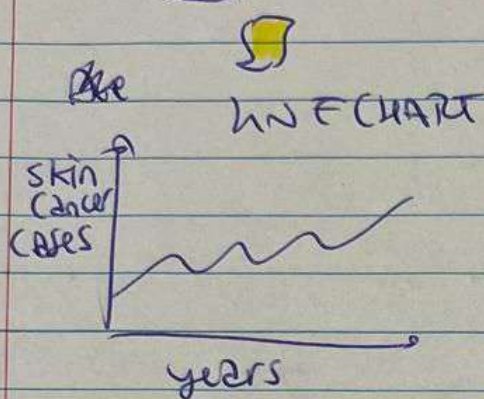 LINE CHART
skin
cancer
cases
years